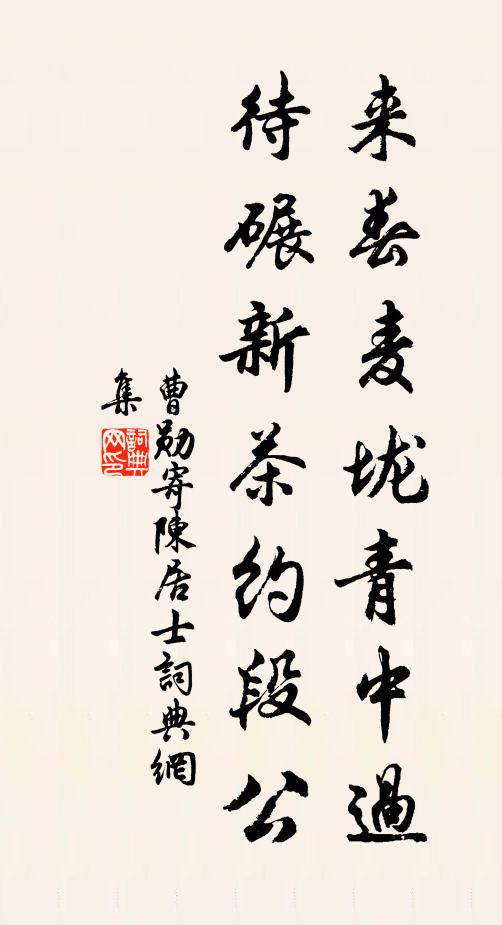 来春麦垅青中過
待碾新茶約段公
曹勛寄陳居士詞典網
集
詞典
网印